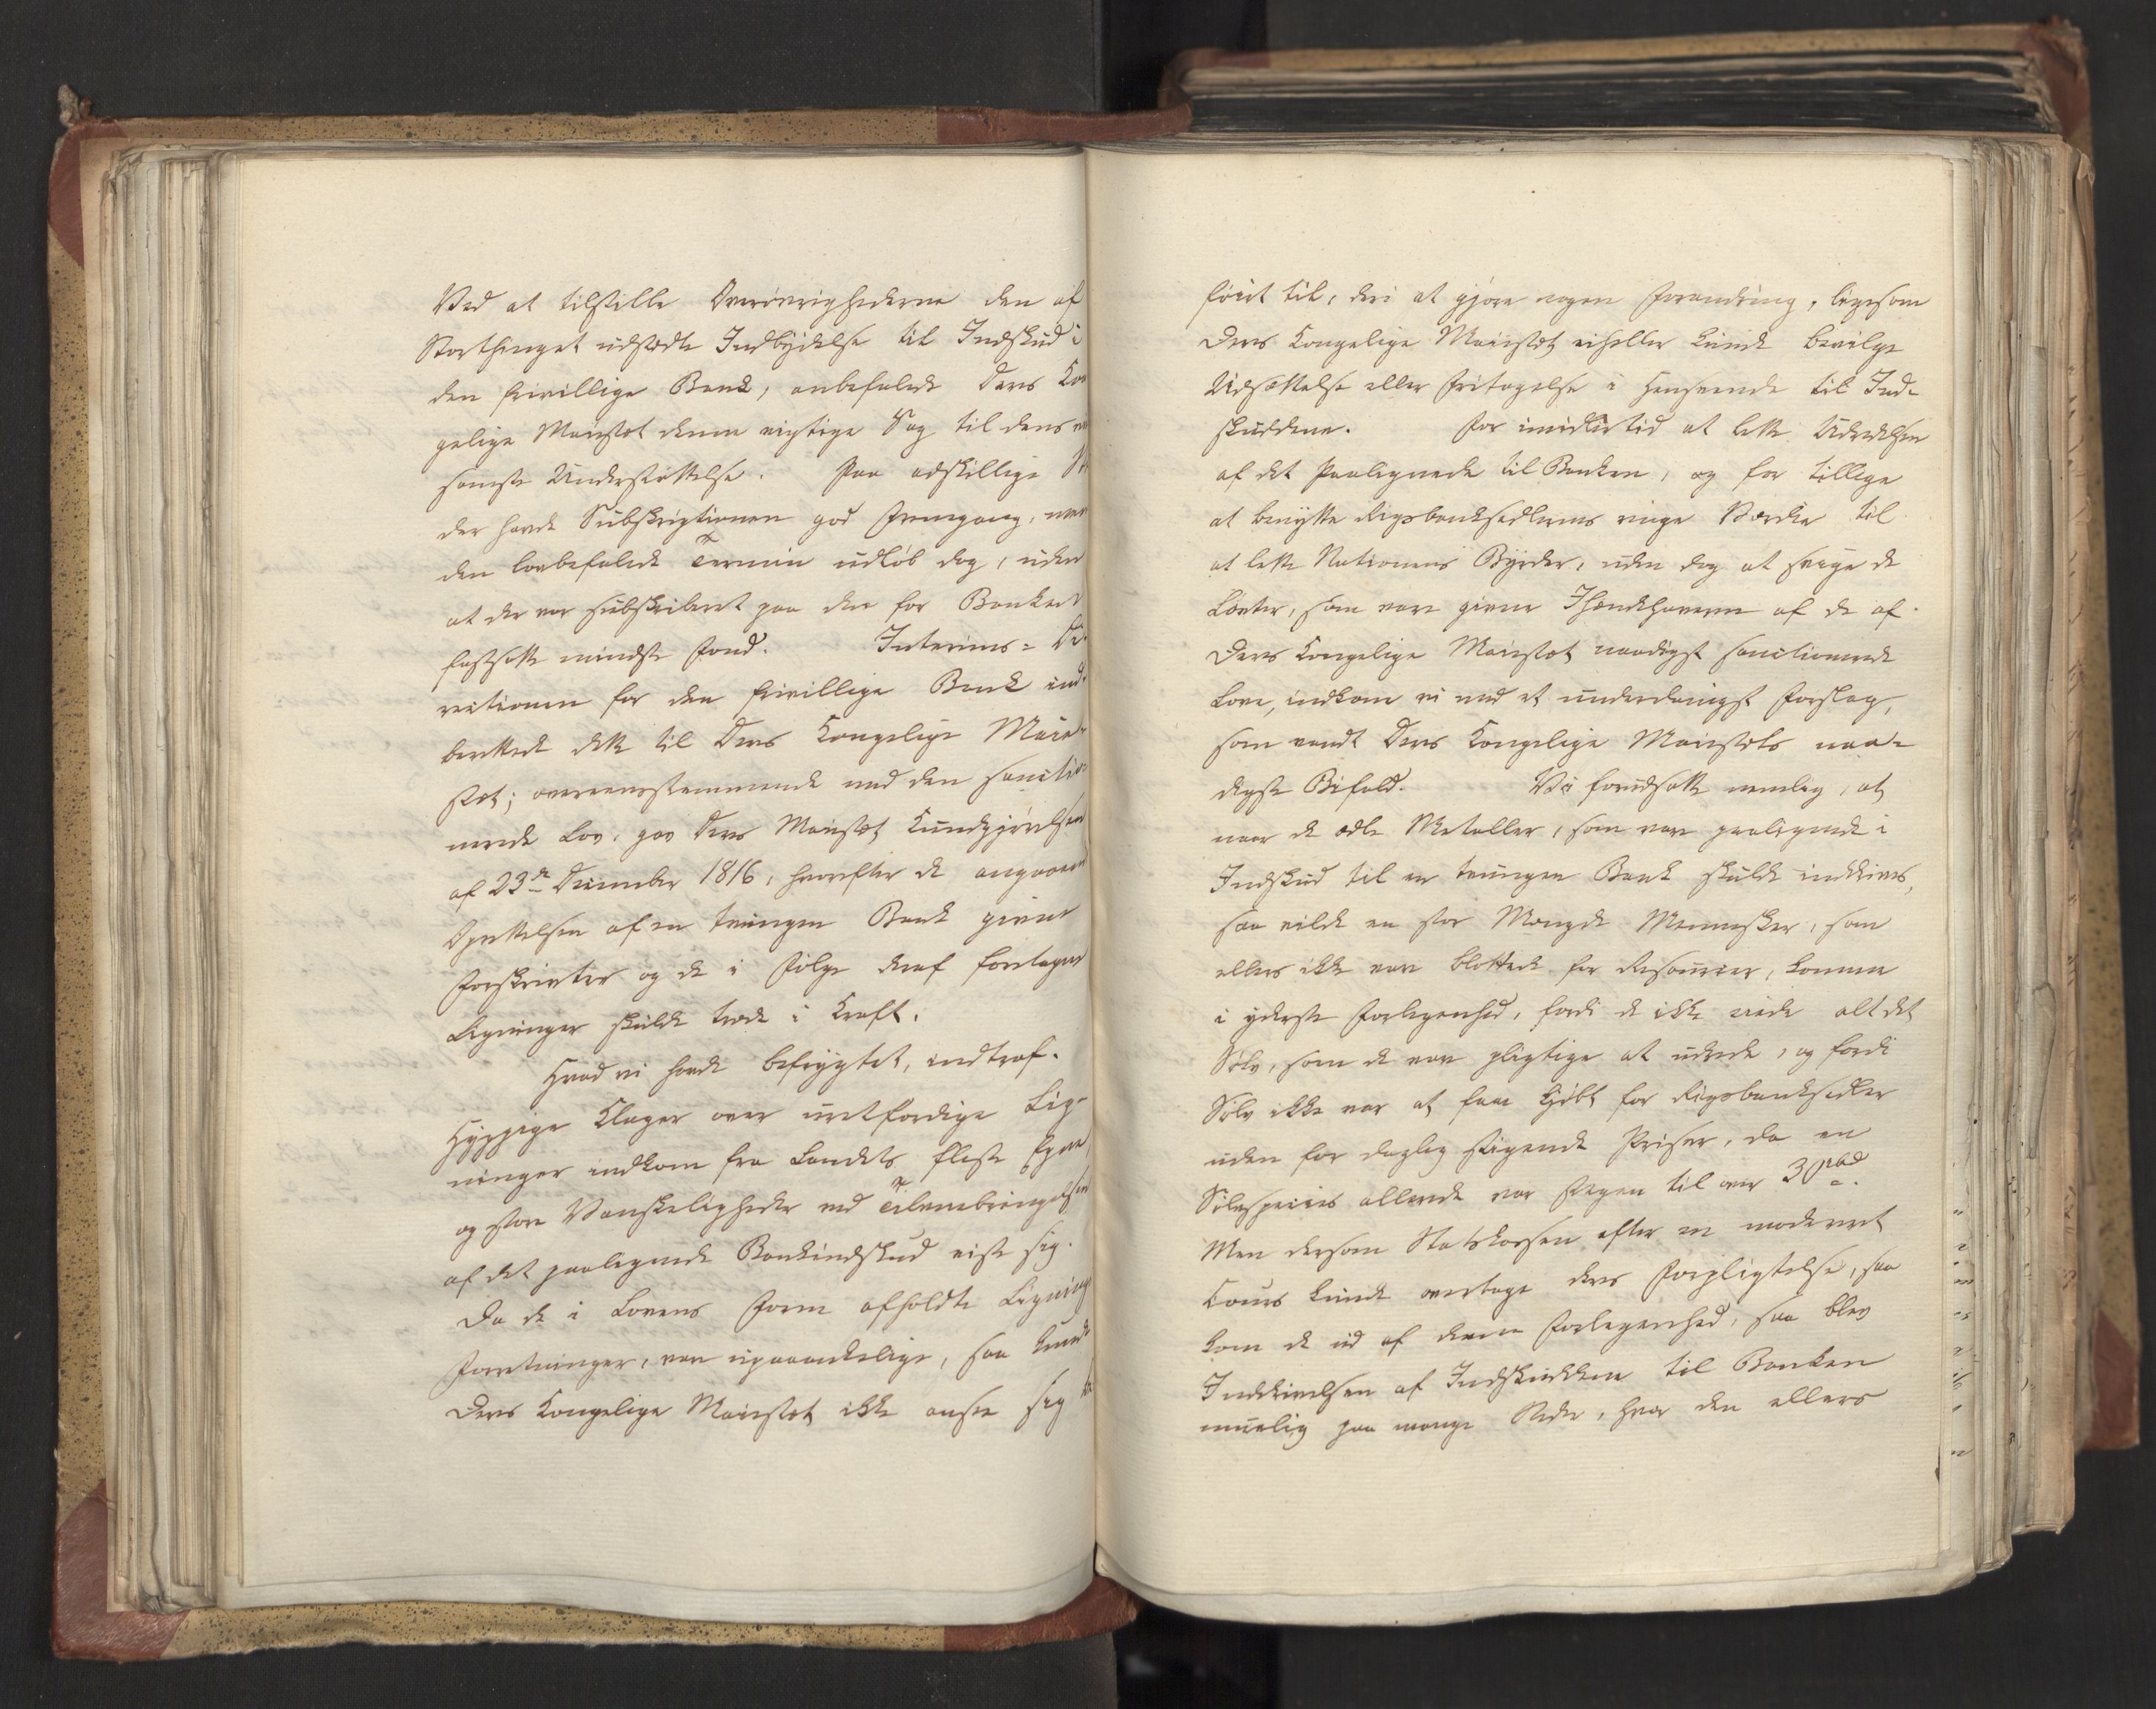 Ved at tilstille Overøvrighederne den af
Storthinget udstedte Indbydelse til Indskud i
den frivillige Bank, anbefalede Deres Kon
gelige Majestæt denne vigtige Sag til deres
somste Understøttelse. Paa adskillige St
der havde Subskriptionen god Fremgang, men
den lovbefalede Termin udløb dog, uden
at der var subskriberet paa det for Banken
fastsatte mindste Fond. Interims- Di-
rectionen for den frivillige Bank ind-
berettede dette til Deres Kongelige Maje-
stæt; overeensstemmende med den sanctio-
nerede Lov, gav Deres Majestæt Kundgjørelsen
af 23de December 1816, hvorefter de angaaend
Oprettelsen af en tvungen Bank givne
Forskrifter og de i Følge deraf foretagne
Ligninger skulde træde i Kraft.
Hvad vi havde befrygtet, indtraf.
Hyppige Klager over uretfærdige Lig-
ninger indkom fra Landets fleste Egne,
og store Vanskeligheder ved Tilveiebringelsen
af det paalignede Bankindskud viste sig.
Da de i Lovens Form afholdte Lignings
Forretninger, vare upaaankelige, saa kunde
Deres Kongelige Majestæt ikke ansee sig be
føiet til, deri at gjøre nogen Forandring, ligesom
Deres Kongelige Majestæt eiheller kunde bevilge
Udsættelse eller Fritagelse i Henseende til Ind-
skuddene. For imidlertid at lette Udredelsen
af det Paalignede til Banken, og for tillige
at benytte Rigsbanksedlernes ringe Værdie til
at lette Nationens Byrder, uden dog at svige de
Løfter, som vare givne Ihændehaverne af de af
Deres Kongelige Majestæt naadigst sanctionerede
Love, indkom vi med et underdanigst Forslag,
som vandt Deres Kongelige Majestæts naa-
digste Bifald. Vi forudsatte nemlig, at
naar de ædle Metaller, som vare paalignede i
Indskud til en tvungen Bank skulde inddrives,
saa vilde en stor Mængde Mennesker, som
ellers ikke vare blottede for Resourcer, komme
i yderste Forlegenhed, fordi de ikke eiede alt det
Sølv, som de vare pligtige at udrede, og fordi
Sølv ikke var at faae kjøbt for Rigsbanksedler
uden for daglig stigende Priser, da en
Sølvspecies allerede var stegen til over 30 rbd.
Men dersom Statskassen efter en modereret
Cours kunde overtage deres Forpligtelse, saa
kom de ud af denne Forlegenhed, saa blev
Inddrivelsen af Indskuddene til Banken
muelig paa mange Steder, hvor den ellers